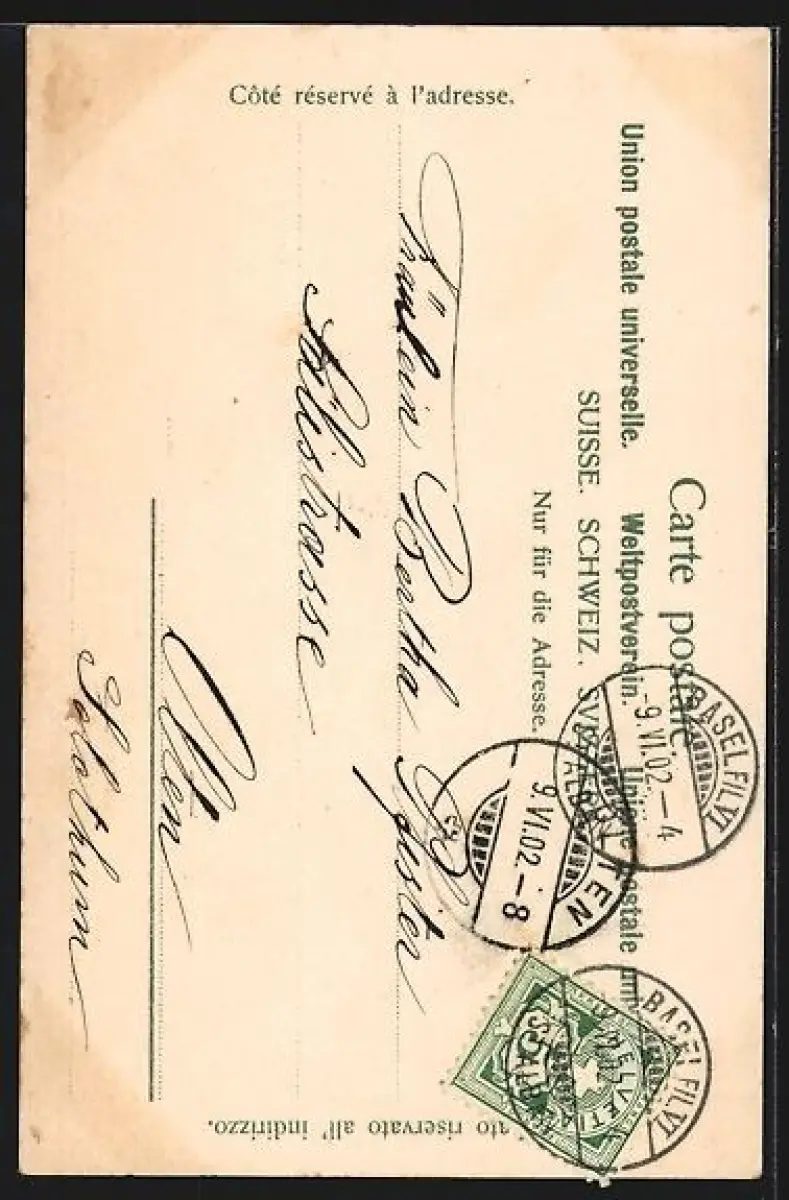 Carte postale.
Union postale universelle. Weltpostverein. Unione postale uni
SUISSE. SCHWEIZ. SVIZZERA.
Nur für die Adresse.
Côté réservé à l'adresse.
ato riservato all' indirizzo.
Fräulein Bertha Pfister
Olten
Solothurn
BASEL FIL. VI
-9.VI.02.-4
OLTEN
9.VI.02.-8
BASEL FIL. VI
HELVETIA